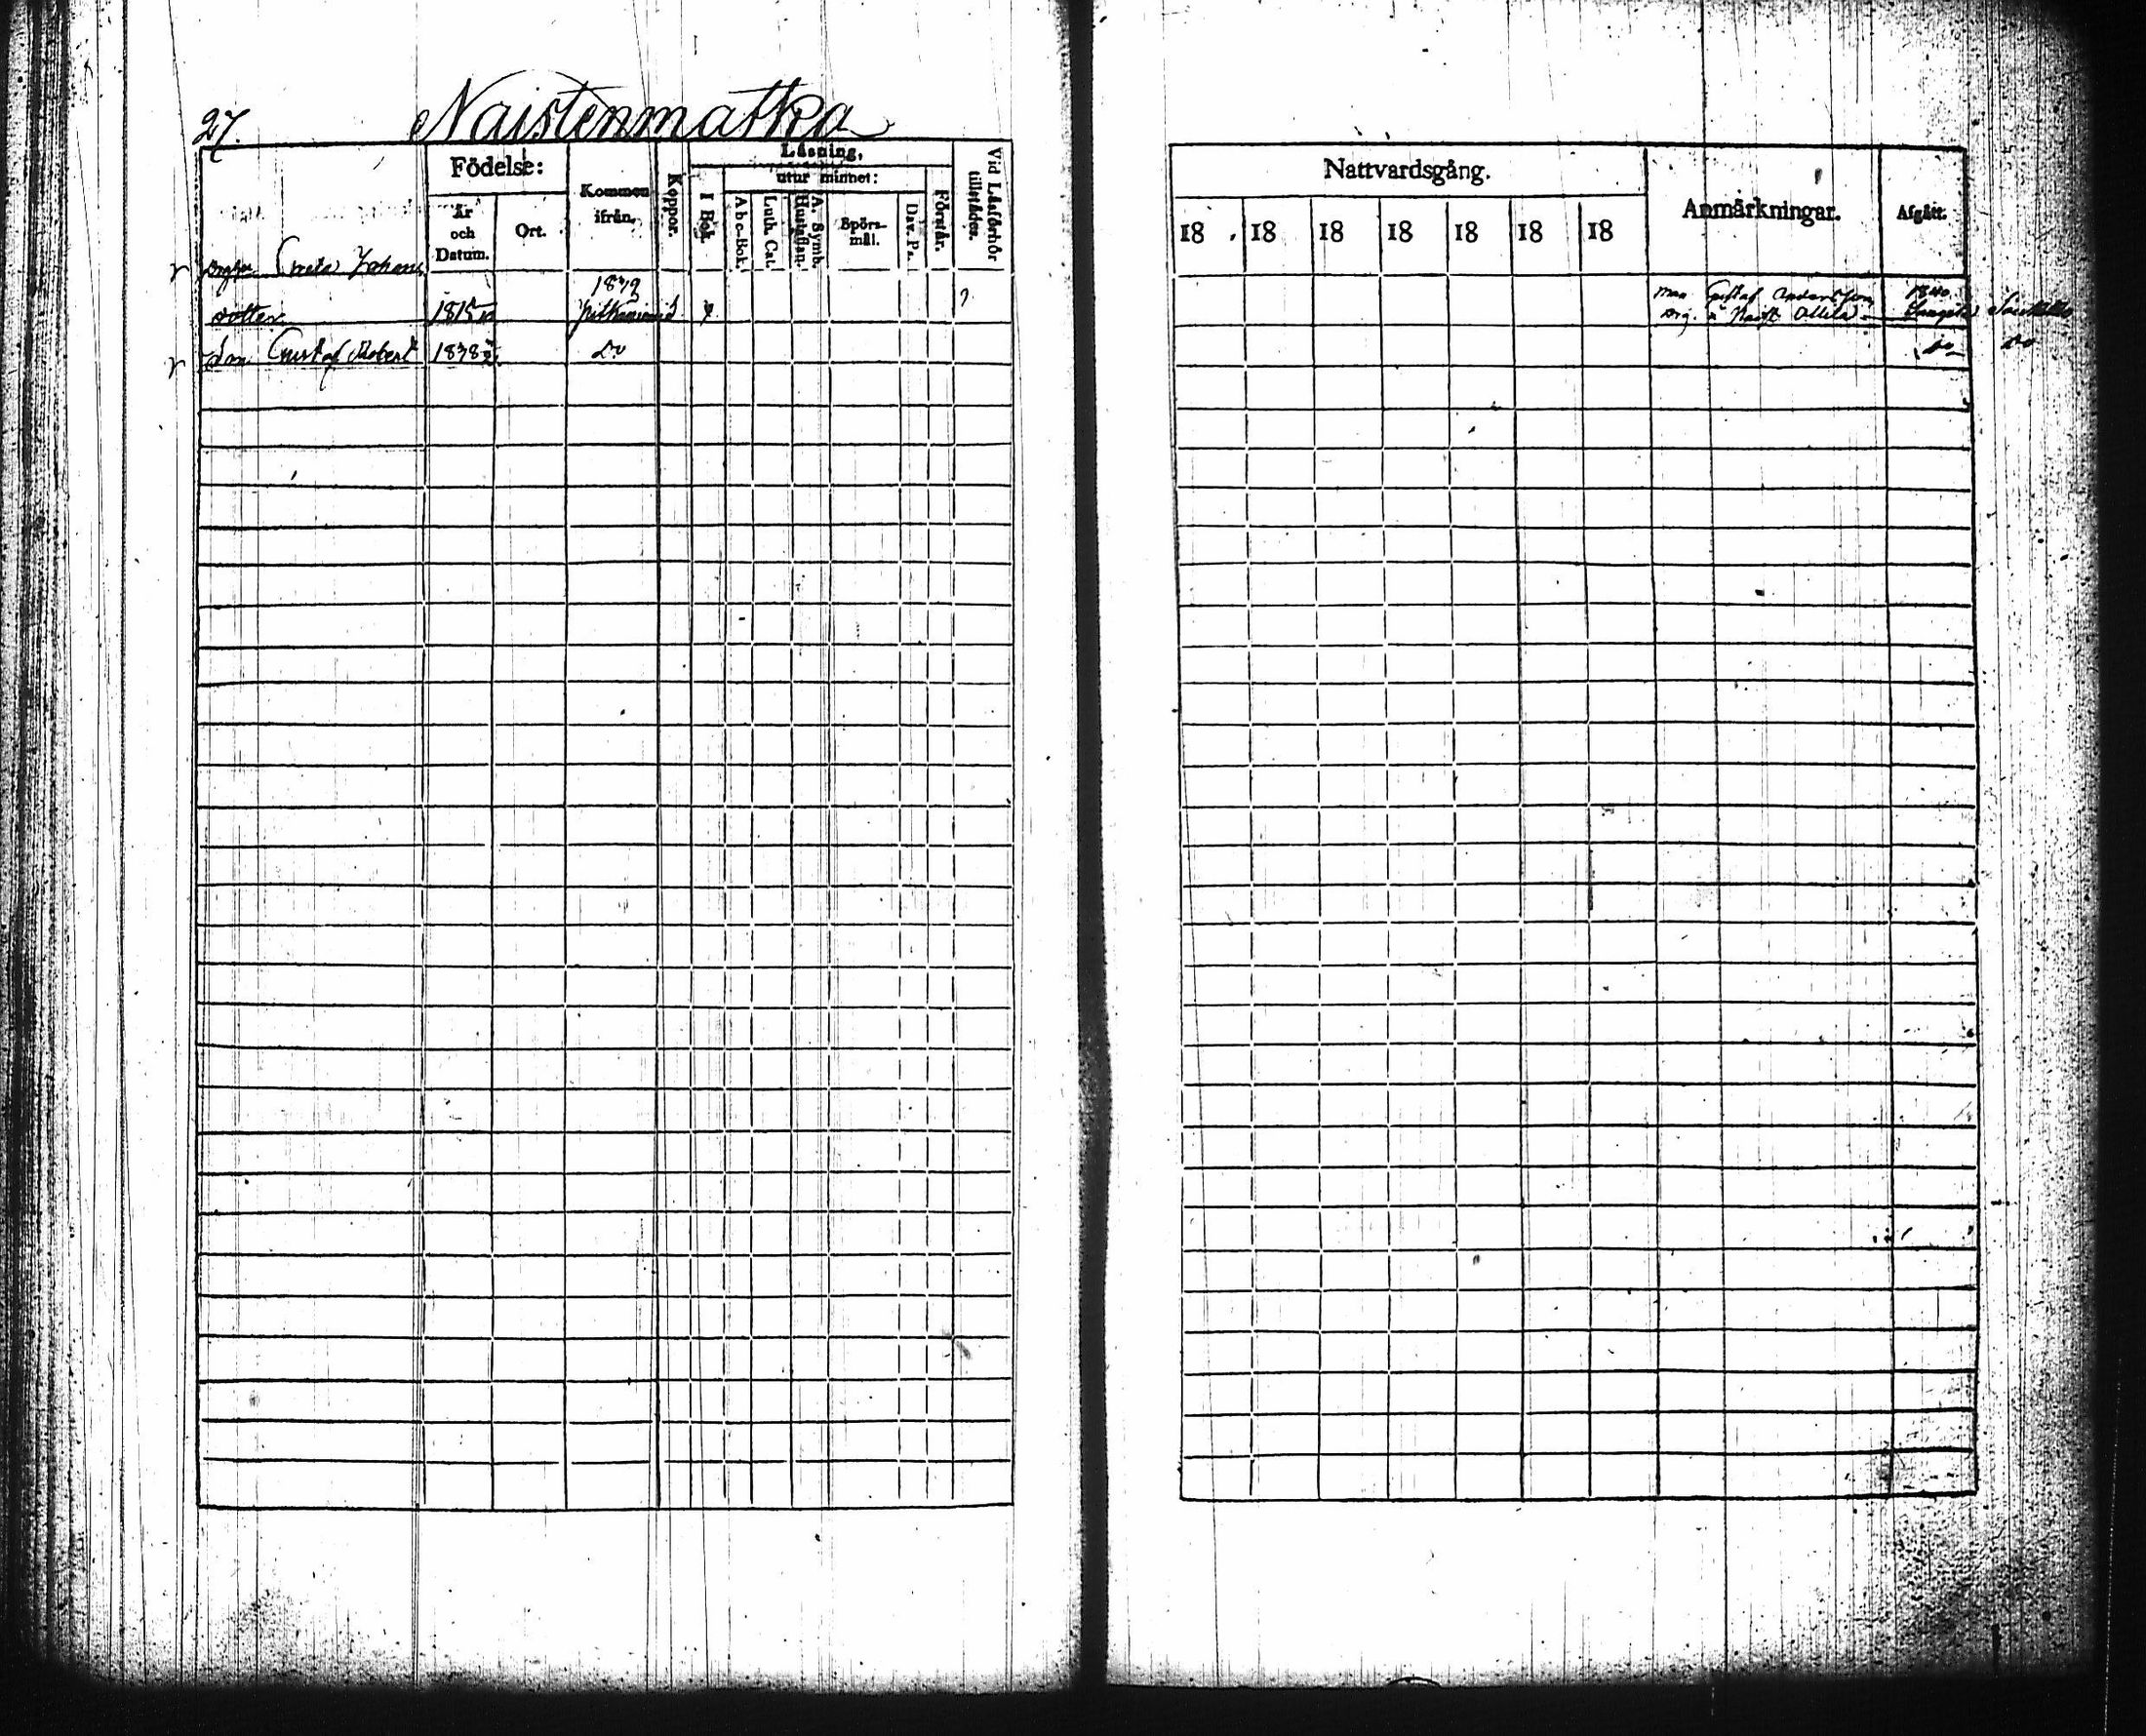 27.
Naistenmatka
Födelse:
År
och
Datum.
Ort.
Kommen
ifrån,
Koppor.
Läsning,
I Bok.
utur minnet:
Abc-Bok.
Luth. Cat.
A. Symb.
Hustaflan.
Spörs-
mål.
Dav. Ps.
Förstår.
Vid Läsförhör
tillstädes.
Greta Johans
dotter 1815
1839
Son Gustaf Robert 1838 Do
Nattvardsgång.
18 18 18 18 18 18 18
Anmärkningar.
Afgått.
man Gustaf Andersson
1840
Do Do